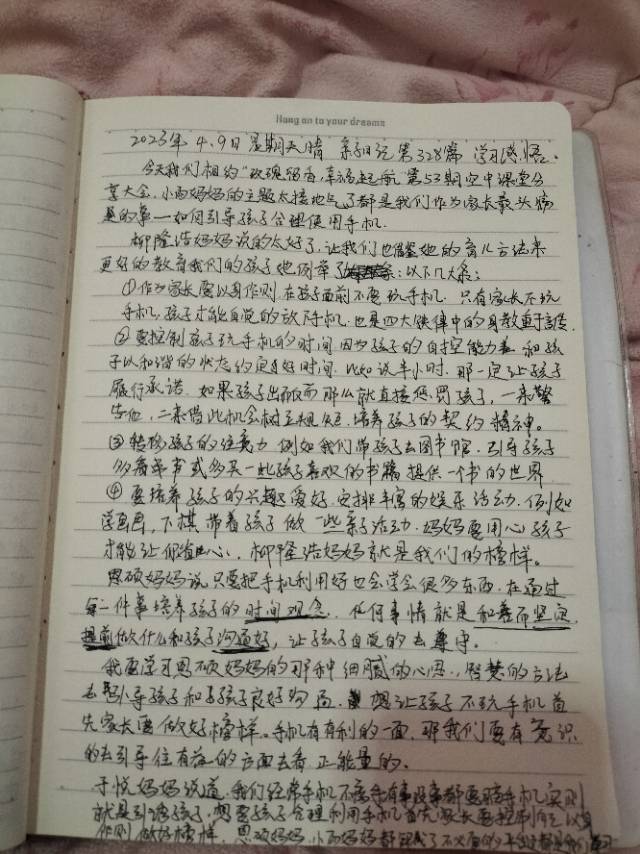 Hang on to your dreams
2023年4.9日 星期天晴 亲子日记第328篇 学习感悟。
今天我们相约"玫瑰留香,幸福起航"第53期空中课堂分
享大会,小雨妈妈的主题太接地气了都是我们作为家长最头痛
的事—如何引导孩子合理使用手机.
柳隆浩妈妈说的太好了,让我们也借鉴她的育儿方法来
更好的教育我们的孩子她例举了:以下几大条:
①作为家长要以身作则,在孩子面前不要玩手机.只有家长不玩
手机,孩子才能自觉的放下手机.也是四大铁律中的身教重于言传
②要控制孩子玩手机的时间,因为孩子的自控能力差.和孩
子以和谐的状态约定好时间.比如说半小时.那一定让孩子
履行承诺.如果孩子出尔反尔那么就直接惩罚孩子,一来警
告他,二来借此机会树立规矩.培养孩子的契约精神。
③转移孩子的注意力 例如我们带孩子去图书馆.引导孩子
多看章节或多买一些孩子喜欢的书籍提供一个书的世界
④要培养孩子的兴趣爱好.安排丰富的娱乐活动.例如
学画画,下棋 带着孩子做一些亲子活动.妈妈要用心孩子
才能让你省心,柳隆浩妈妈就是我们的榜样。
思硕妈妈说只要把手机利用好也会学会很多东西.在通过
每一件事培养孩子的时间观念.任何事情就是和善而坚定
提前做什么和孩子沟通好,让孩子自觉的去遵守。
我要学习思硕妈妈的那种细腻的心思.,智慧的方法
去引导孩子和孩子良好沟通.想让孩子不玩手机首
先家长要做好榜样。手机有有利的一面,那我们要有意识
的去引导往有益的方面去看正能量的。
于悦妈妈说道,我们经常手机不离手有事没事都要摸手机实则
就是引诱孩子.想要孩子合理利用手机首先家长要控制自己以身
作则做好榜样.思硕妈妈,小雨妈妈都